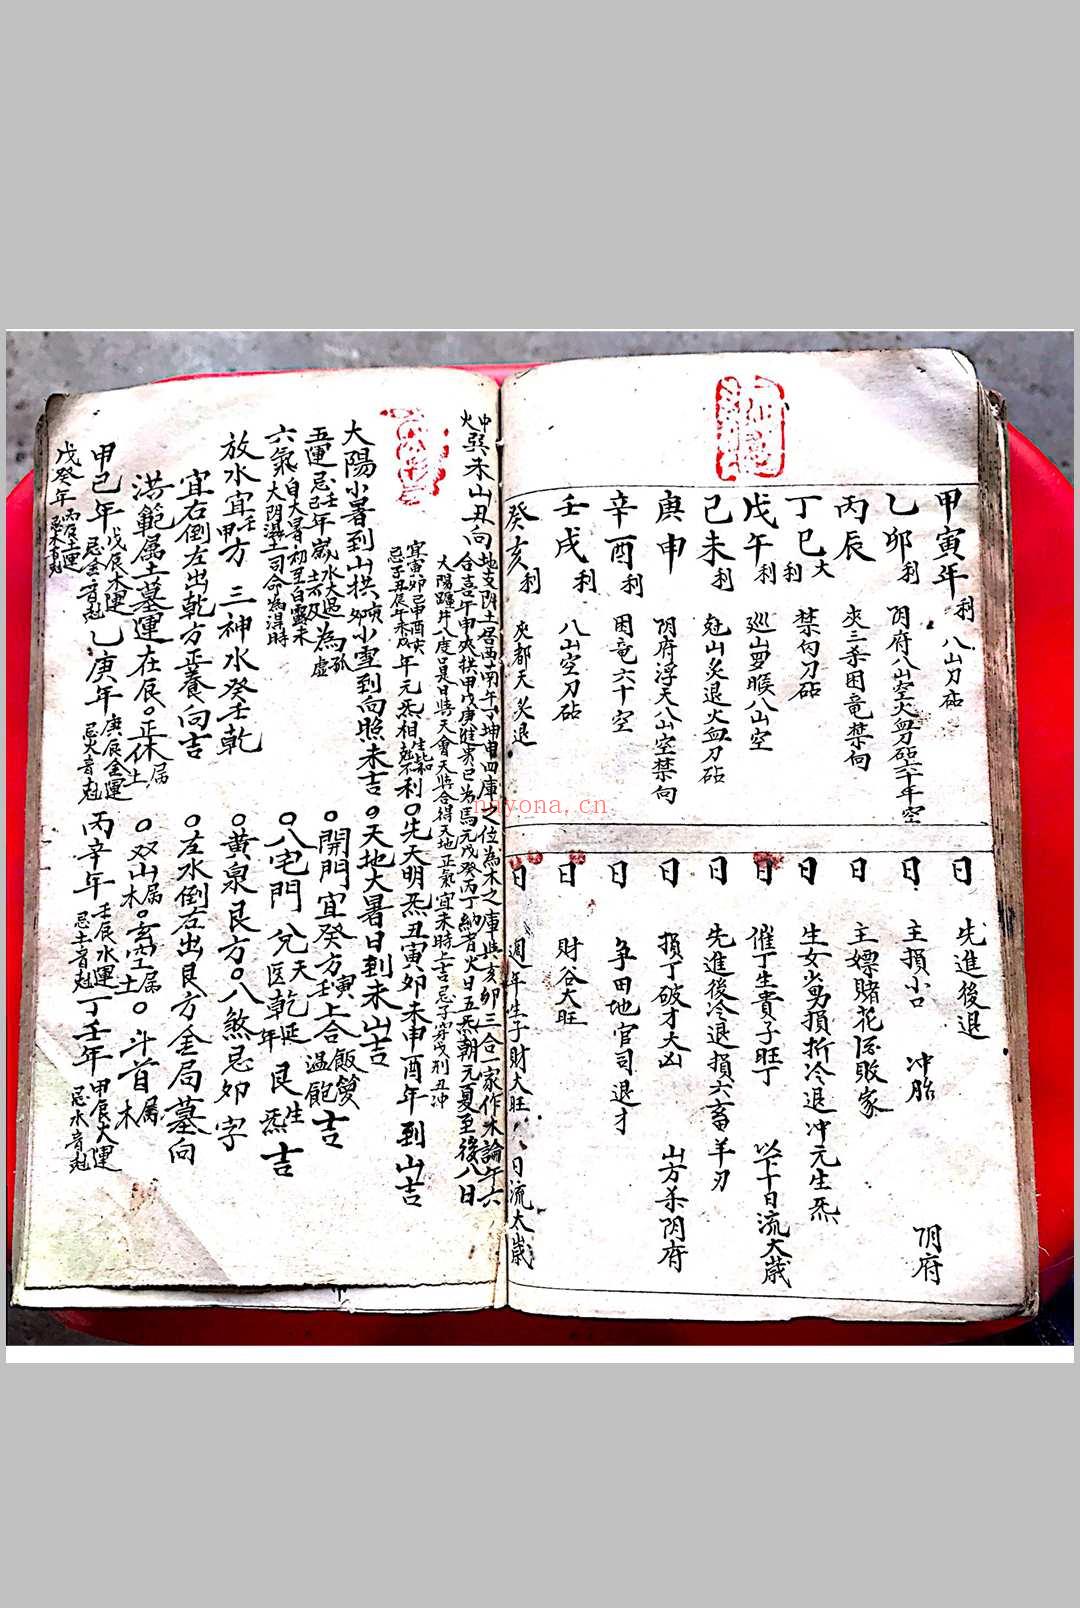 甲寅年利 八山刀砧
日 先進後退
乙卯利 阴府八山空火血刀砧六十年空
日 主損小口 冲胎 阴府
丙辰 夾三杀困竜禁向
日 主嫖賭花酒敗家
丁巳大利 禁向刀砧
日 生女当男損折冷退冲元生炁
戊午利 巡山罗睺八山空
日 催丁生貴子旺丁 以下十日流太歲
己未利 尅山炙退火血刀砧
日 先進後冷退損六畜羊刃
庚申 阴府浮天八山空禁向
日 損丁破才大凶 山方杀阴府
辛酉利 困竜六十空
日 争田地官司退才
壬戌利 八山空刀砧
日 財谷大旺
癸亥利 夾都天炙退
日 週年生子財大旺 日流太歲
中火癸未山丑向 地支阴土居西南午丁坤申四庫之位為木之庫與亥卯三合一家作木論午六
合喜午申夾拱甲戊庚 巳為馬元戊癸丙丁納音火日五炁朝元夏至後八日
太陽躔井八度 是日與天會天與合得天地正氣宜未時上吉忌子 戌刑丑冲
宜寅卯巳申酉亥 年元炁相 利○先天明炁丑寅卯未申酉年到山吉
太陽小暑到山拱 小雪到向照未吉○天地大暑日到未山吉
五運忌壬己年歲水太過土不及為孤虛 ○開門宜癸方壬寅上合飯籮温飽吉
六氣自大暑初至白露末大阴濕土司命為得時 ○八宅門兌天医乾延年艮生炁吉
放水宜壬甲方 三神水癸壬乾 ○黄泉艮方○八煞忌卯字
宜右倒左出乾方正養向吉 ○左水倒右出艮方金局墓向
洪範属土墓運在辰○正休属土 ○双山属木○玄空属土○斗首属木
甲己年戊辰木運忌金音尅 乙庚年庚辰金運忌火音尅 丙辛年壬辰水運忌土音尅 丁壬年甲辰火運忌水音尅
戊癸年丙辰土運忌木音尅
nuvona.cn